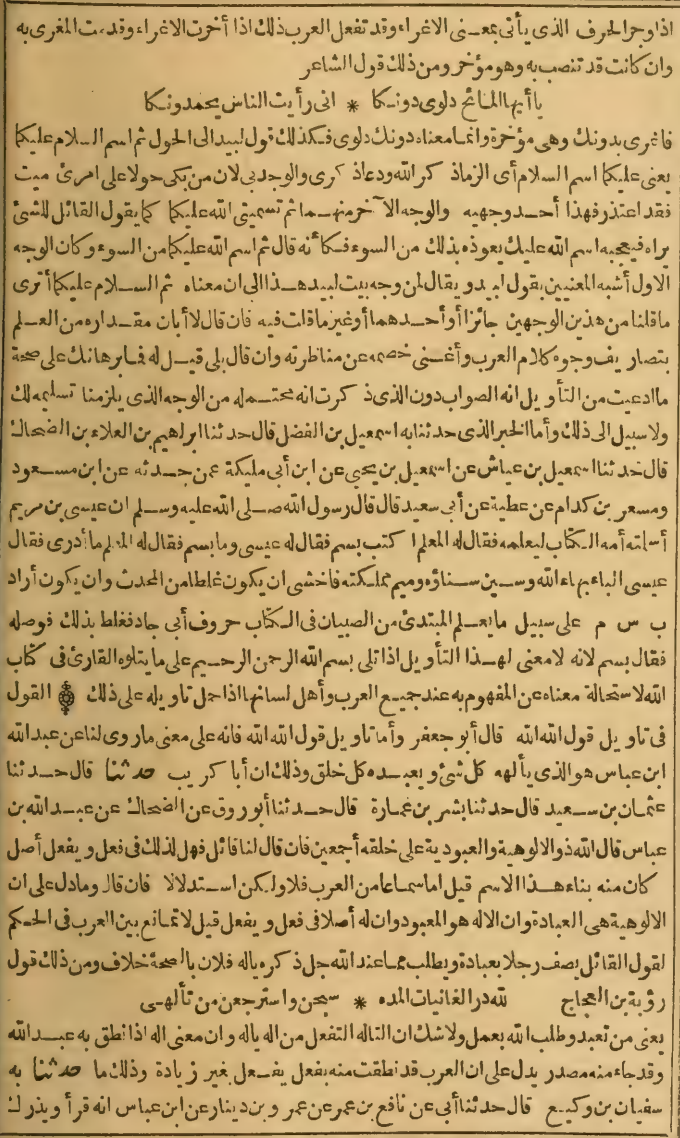 اذا وجر الحرف الذى يأتى بمعنى الاغراء وقد تفعل العرب ذلك اذا أخرت الاغراء وقدمت المغرى به
وان كانت قد تنصب به وهو مؤخر ومن ذلك قول الشاعر
يا أيها المائح دلوى دونكا * انى رأيت الناس يحمدونكا
فاغرى بدونك وهى مؤخرة وانما معناه دونك دلوى فكذلك قول لبيد الى الحول ثم اسم السلام عليكما
يعنى عليكما اسم السلام أى الزما ذكر الله ودعا ذكرى والوجد بى لان من بكى حولا على امرئ ميت
فقد اعتذر فهذا أحد وجهيه والوجه الآخر منهما ثم تسميتى الله عليكما كما يقول القائل للشئ
يراه فيعجبه اسم الله عليك يعوذه بذلك من السوء فكأنه قال ثم اسم الله عليكما من السوء وكان الوجه
الاول أشبه المعنيين بقول لبيد ويقال لمن وجه بيت لبيد هذا الى ان معناه ثم السلام عليكما أترى
ما قلنا من هذين الوجهين جائزا أو أحدهما أو غير ما قلت فيه فان قال لا أبان مقداره من العلم
بتصاريف وجوه كلام العرب وأغنى خصمه عن مناظرته وان قال بلى قيل له فما برهانك على صحة
ما ادعيت من التأويل انه الصواب دون الذى ذكرت انه محتمله من الوجه الذى يلزمنا تسليمه لك
ولا سبيل الى ذلك وأما الخبر الذى حدثنا به اسمعيل بن الفضل قال حدثنا ابراهيم بن العلاء بن الضحاك
قال حدثنا اسمعيل بن عياش عن اسمعيل بن يحيى عن ابن أبى مليكة عمن حدثه عن ابن مسعود
ومسعر بن كدام عن عطية عن أبى سعيد قال قال رسول الله صلى الله عليه وسلم ان عيسى بن مريم
أسلمته أمه الى الكتاب ليعلمه فقال له المعلم اكتب بسم فقال له عيسى وما بسم فقال له المعلم ما أدرى فقال
عيسى الباء بهاء الله وسين سناؤه وميم مملكته فاخشى ان يكون غلطا من المحدث وان يكون أراد
ب س م على سبيل ما يعلم المبتدئ من الصبيان فى الكتاب حروف أبى جاد فغلط بذلك فوصله
فقال بسم لانه لا معنى لهذا التأويل اذا تلى بسم الله الرحمن الرحيم على ما يتلوه القارئ فى كتاب
الله لاستحالة معناه عن المفهوم به عند جميع العرب وأهل لسانها اذا حمل تاويله على ذلك القول
فى تاويل قول الله الله قال أبو جعفر وأما تاويل قول الله الله فانه على معنى ما روى لنا عن عبد الله
ابن عباس هو الذى يألهه كل شئ ويعبده كل خلق وذلك ان أبا كريب حدثنا قال حدثنا
عثمان بن سعيد قال حدثنا بشر بن عمارة قال حدثنا أبو روق عن الضحاك عن عبد الله بن
عباس قال الله ذو الالوهية والعبودية على خلقه أجمعين فان قال لنا قائل فهل لذلك فى فعل ويفعل أصل
كان منه بناء هذا الاسم قيل اما سماعا من العرب فلا ولكن استدلالا فان قال وما دل على ان
الالوهية هى العبادة وان الاله هو المعبود وان له أصلا فى فعل ويفعل قيل لا تمانع بين العرب فى الحكم
لقول القائل يصف رجلا بعبادة ويطلب مما عند الله جل ذكره ياله فلان بالصحة خلاف ومن ذلك قول
رؤبة بن العجاج لله در الغانيات المده * سبحن واسترجعن من تألهى
يعنى من تعبد وطلب الله بعمل ولا شك ان التاله التفعل من اله ياله وان معنى اله اذا نطق به عبد الله
وقد جاء منه مصدر يدل على ان العرب قد نطقت منه بفعل يفعل بغير زيادة وذلك ما حدثنا به
سفيان بن وكيع قال حدثنا أبى عن نافع بن عمر عن عمرو بن دينار عن ابن عباس انه قرأ ويذرك